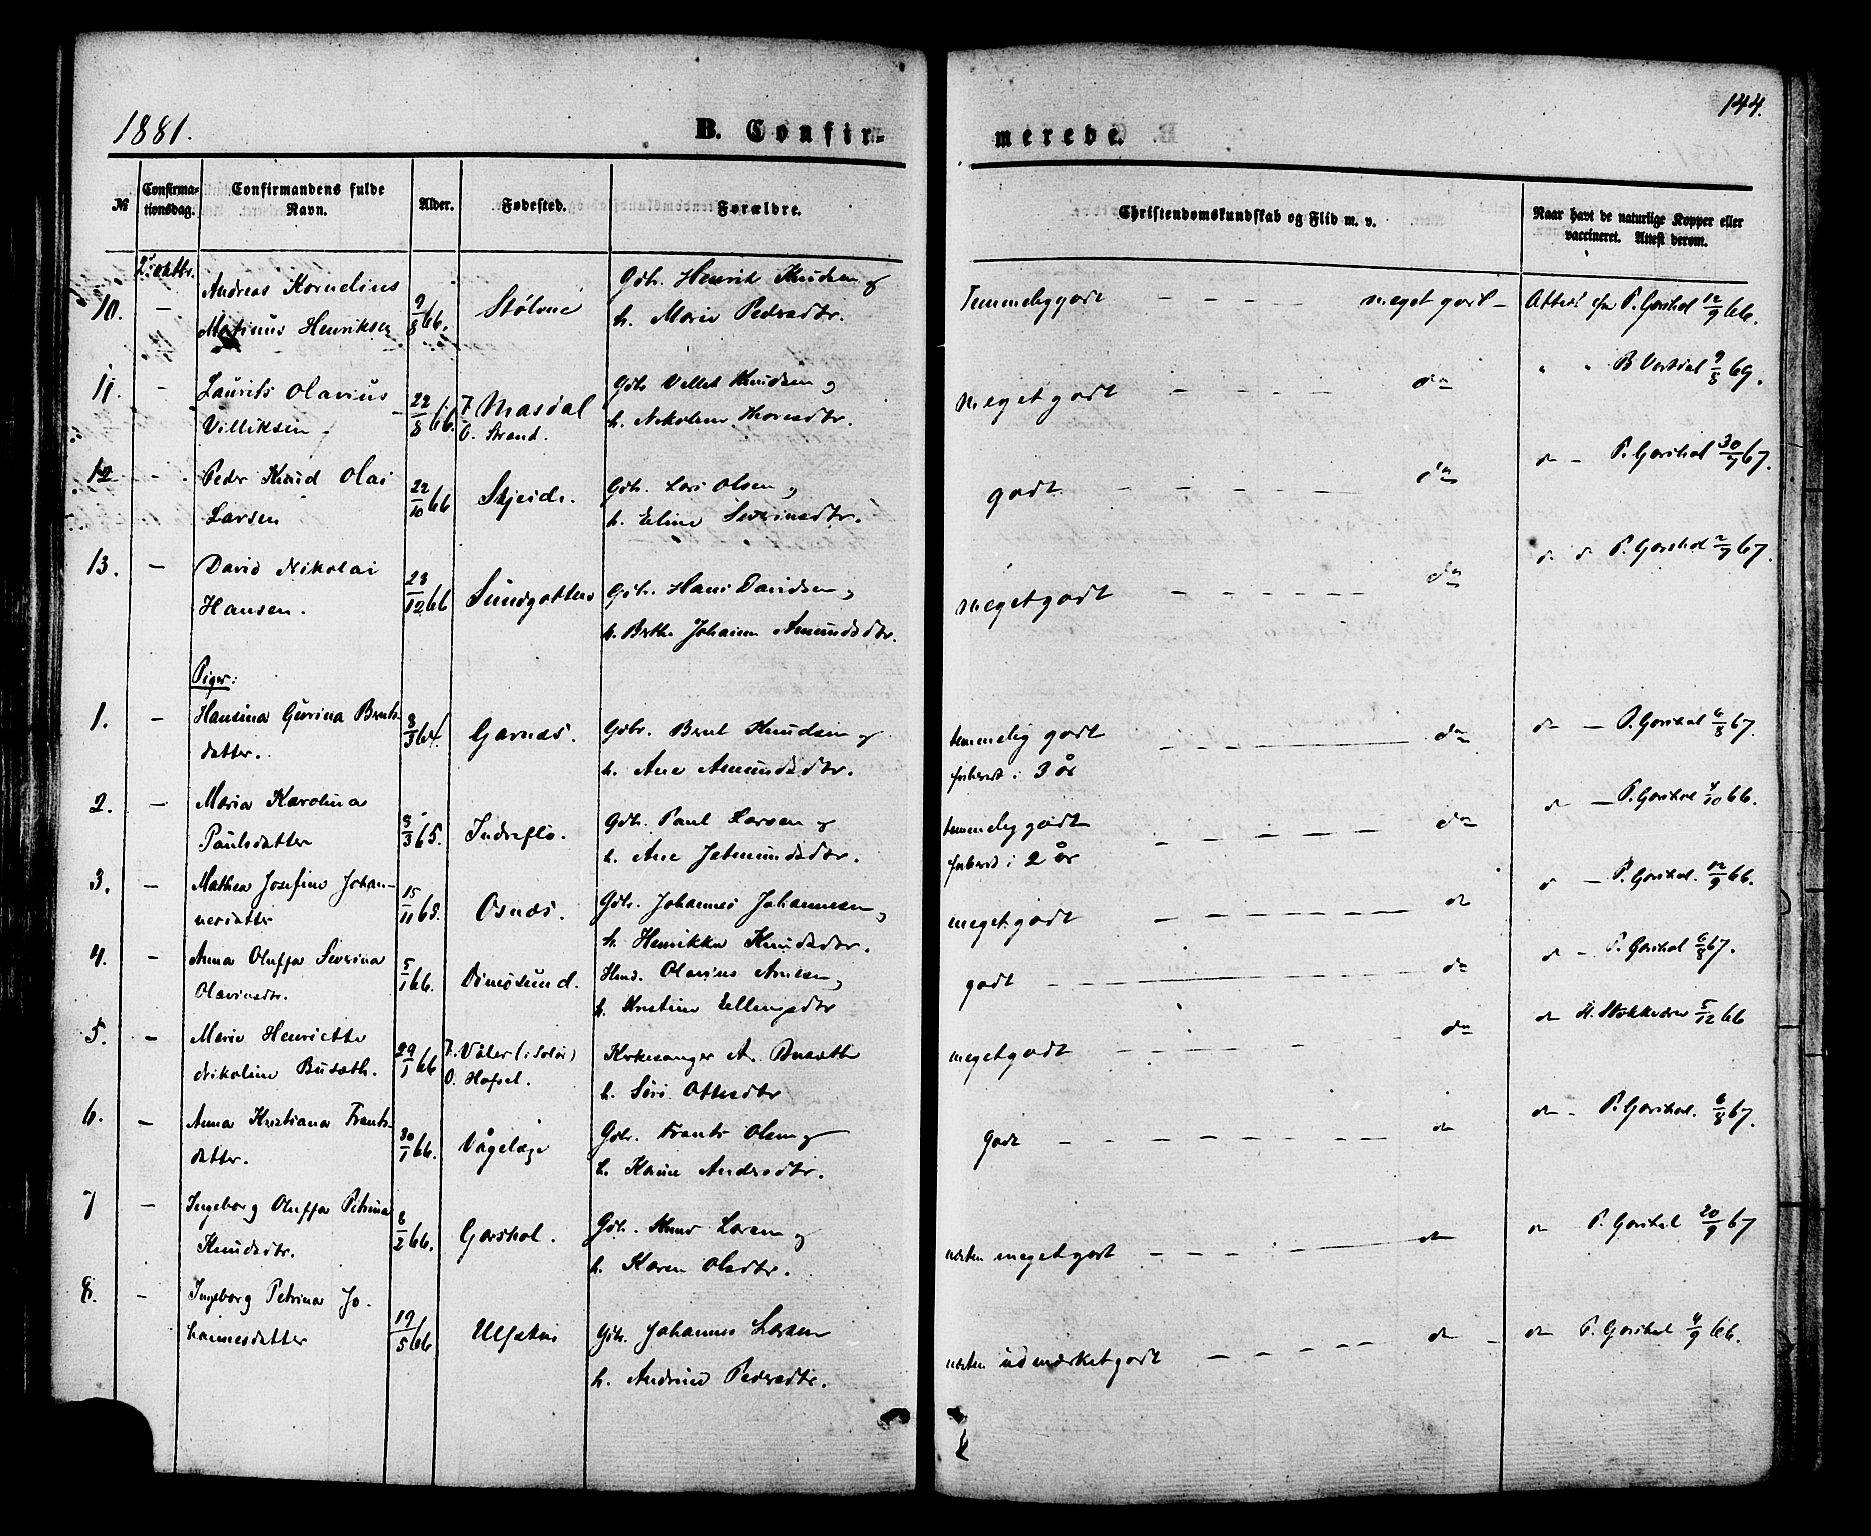 1881.
B. Confir-
merede.
144.
№
Confirma-
tionsdag.
Confirmandens fulde
Navn.
Alder.
Fødested.
Forældre.
Christendomskundskab og Flid m. v.
Naar havt de naturlige Kopper eller
vaccineret. Attest derom.
2. oktbr.
10. — Andreas Kornelius
Martinus Henriksen
9/8 66. Stølene
Gbr. Henrik Knudsen og
h. Marie Pedersdtr.
Temmelig godt — — — meget godt — Attest fra P. Garshol 12/9 66.
11. — Laurits Olavius
Villiksen
22/8 66. F. Masdal
O. Strand.
Gbr. Knudsen og
h. Nikoline
meget godt — — — do " " B. 9/8 69.
12 — Peder Knud Olai
Larsen
22/10 66 Skjeide.
Gbr. Lars Olsen og
h. Eline Severinsdtr.
godt — — — do do — P. Garshol 30/7 67.
13. — David Nikolai
Hansen.
23/12 66 Sundgotten
Gbr. Hans Davidsen og
h. Berthe Johanne Amundsdtr.
meget godt — — — do do do P. Garshol 2/7 67.
Piger:
1. — Hansina Gurina Bernts-
datter.
8/3 64. Garnæs.
Gbr. Bernt Knudsen og
h. Ane Amundsdtr.
temmelig godt
forbered i 3 år
— — — do do — P. Garshol 6/8 67.
2. — Maria Karolina
Paulsdatter
9/3 65. Indreflø.
Gbr. Paul Larsen og
h. Ane Jetmundsdtr.
temmelig godt
forbered i 2 år
— — — do do — P. Garshol 4/10 66.
3. — Mathea Josefine Johan-
nesdatter
15/11 65. Osnæs.
Gbr. Johannes Johannesen og
h. Henrikke Knudsdtr.
meget godt — — — do do — P. Garshol. 12/9 66.
4. — Anna Oluffa Severina
Olavinsdtr.
5/1 66. Dimøsund.
Hmd. Olavius Arnesen og
h. Kristine Ellingsdtr
godt — — — do do — P. Garshol 6/8 67.
5. — Marie Henriette
Nikoline Busæth.
29/1 66 F. Våler (i Solør)
O. Hofset.
Kirkesanger A. Busæth
h. Siri Ottesdtr
meget godt — — — do do H. Stokkeren 5/12 66
6. — Anna Kristiana Frants-
datter.
30/1 66. Vågelage
Gbr. Frants Olsen og
h. Karen Andersdtr.
Godt — — — do do — P. Garshol. 6/8 67.
7 — Ingeborg Oluffa Petrina
Knudsdtr.
8/2 66. Garshol.
Gbr. Knud Larsen og
h. Karen Olsdtr.
næsten meget godt — — — do do P. Garshol 20/9 67
8. — Ingeborg Petrina Jo-
hannesdatter
19/5 66 Ulfsten
Gbr. Johannes Larsen
h. Andrine Pedersdtr.
næsten udmærket godt — — — do — do P. Garshol 4/9 66.